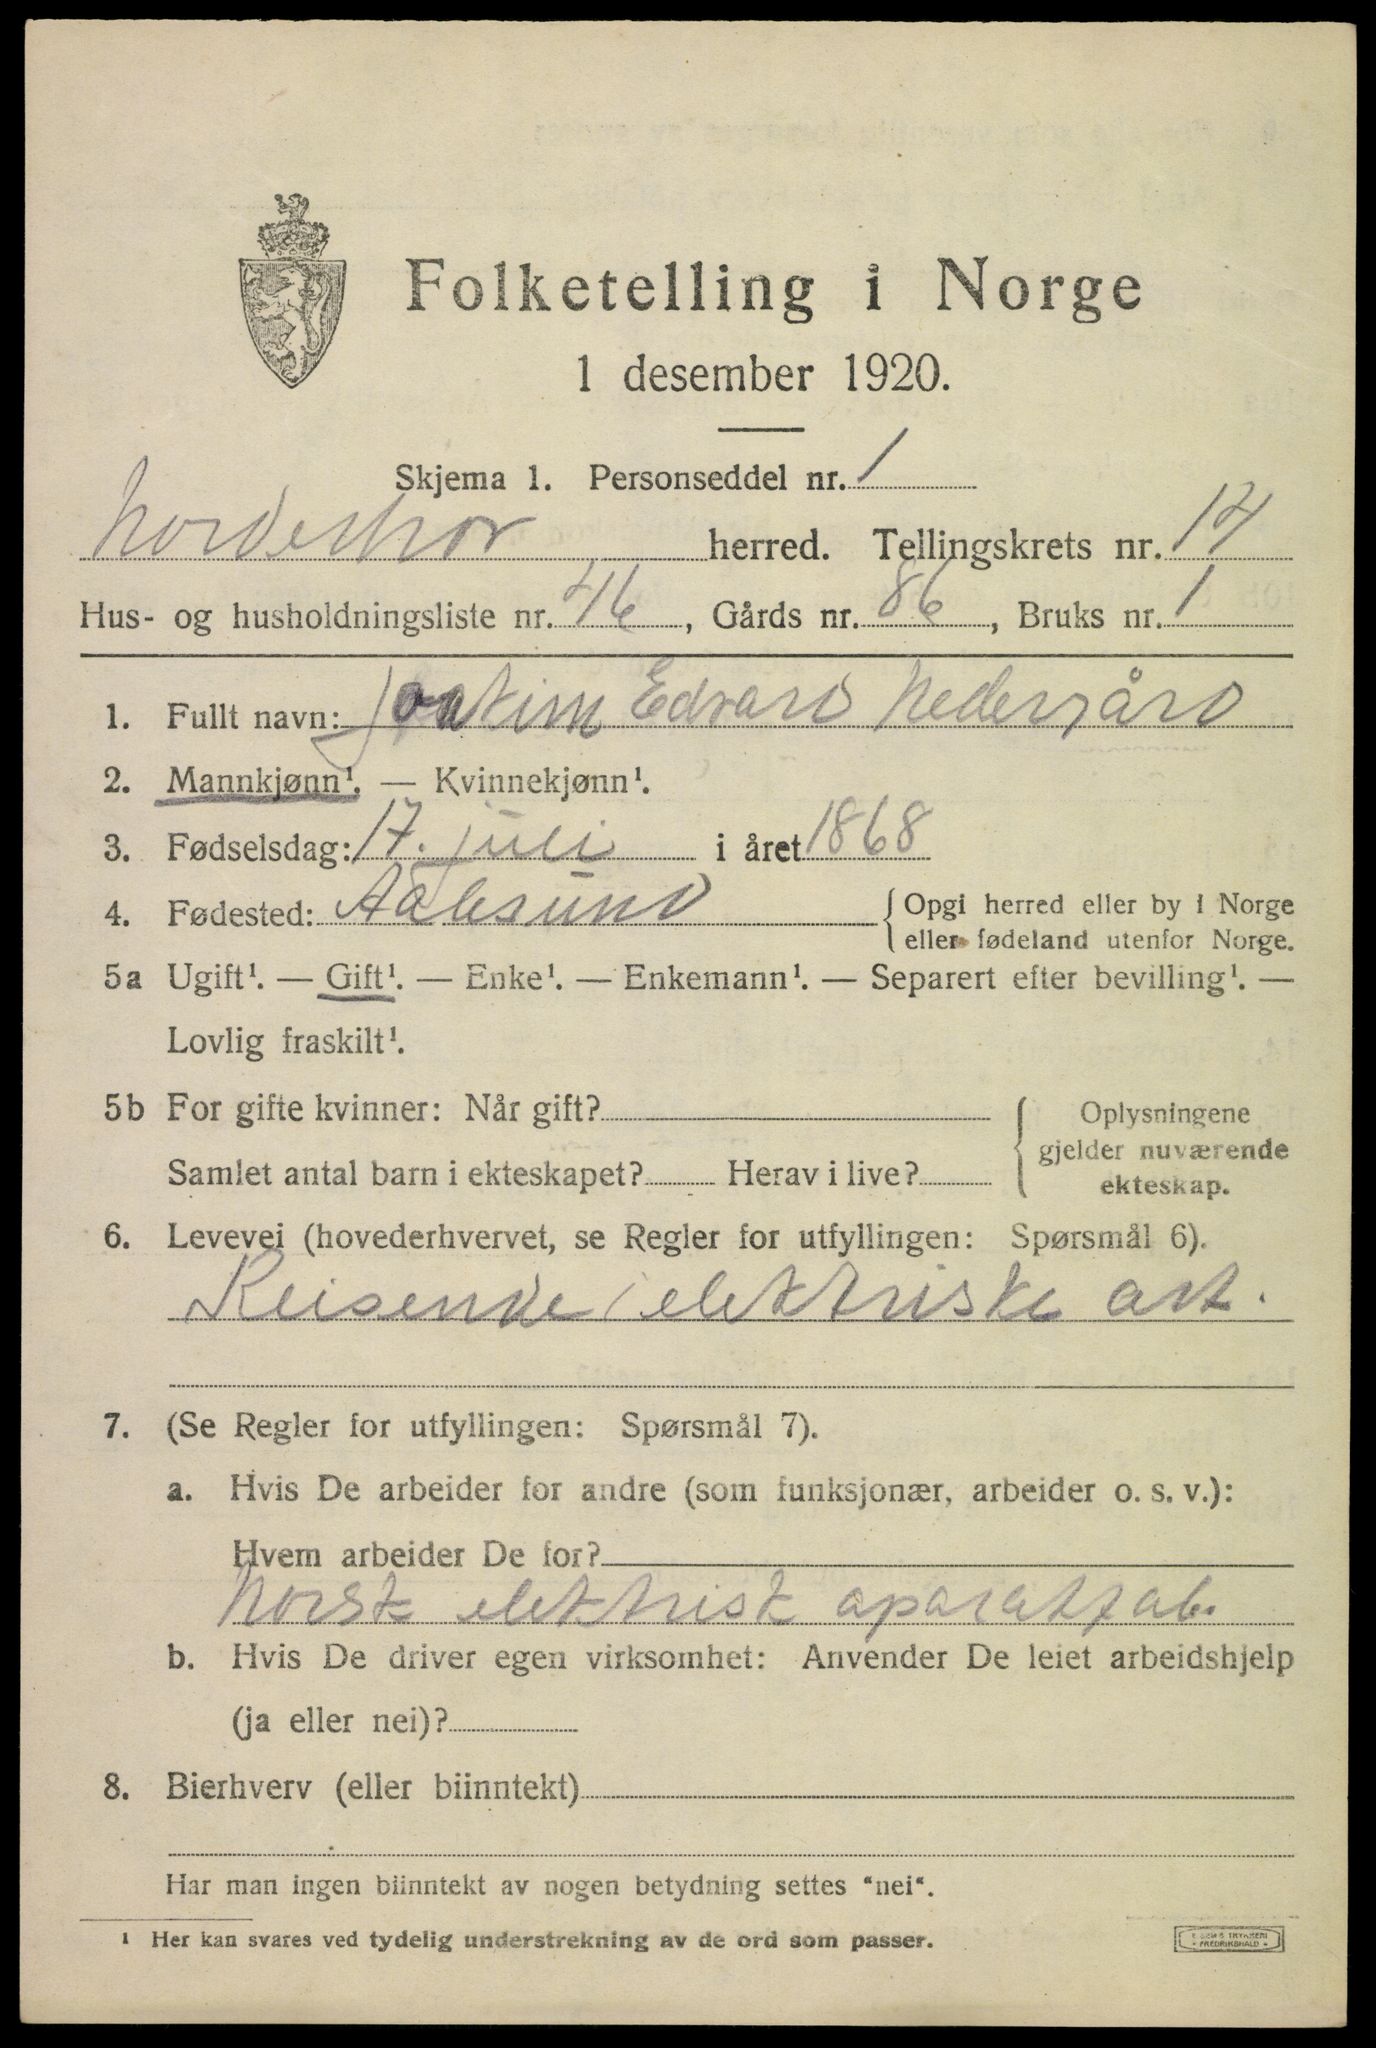 Folketelling i Norge
1 desember 1920.
Skjema 1. Personseddel nr. 1
Norderhov herred. Tellingskrets nr. 14
Hus- og husholdningsliste nr. 46, Gårds nr. 86, Bruks nr. 1
1. Fullt navn: Joakim Edvard Nedergård
2. Mannkjønn¹. — Kvinnekjønn¹.
3. Fødselsdag: 17. juli i året 1868
4. Fødested: Aalesund { Opgi herred eller by i Norge
eller fødeland utenfor Norge.
5a Ugift¹. — Gift¹. — Enke¹. — Enkemann¹. — Separert efter bevilling¹. —
Lovlig fraskilt¹.
5b For gifte kvinner: Når gift? { Oplysningene
gjelder nuværende
Samlet antal barn i ekteskapet? Herav i live? ekteskap.
6. Levevei (hovederhvervet, se Regler for utfyllingen: Spørsmål 6).
Reisende i elektriske art.
7. (Se Regler for utfyllingen: Spørsmål 7).
a. Hvis De arbeider for andre (som funksjonær, arbeider o. s. v.):
Hvem arbeider De for?
Norsk elektrisk aparatfab.
b. Hvis De driver egen virksomhet: Anvender De leiet arbeidshjelp
(ja eller nei)?
8. Bierhverv (eller biinntekt)
Har man ingen biinntekt av nogen betydning settes "nei".
¹ Her kan svares ved tydelig understrekning av de ord som passer.
TRYKKERI
FREDRIKSHALD